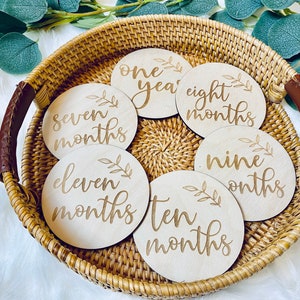 one
year
eight
months
seven
months
nine
onths
eleven
months
ten
months